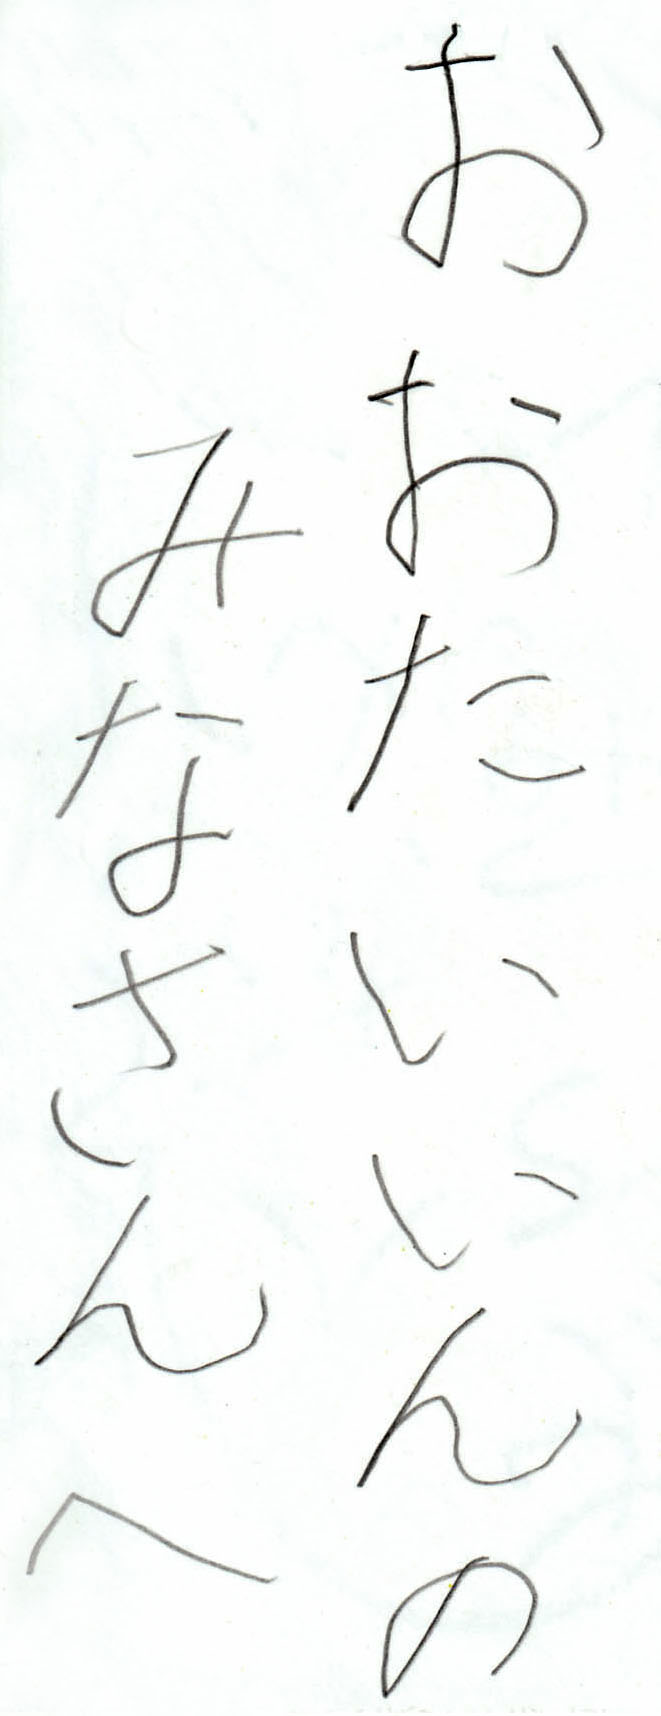 おおたいいんの
みなさんへ